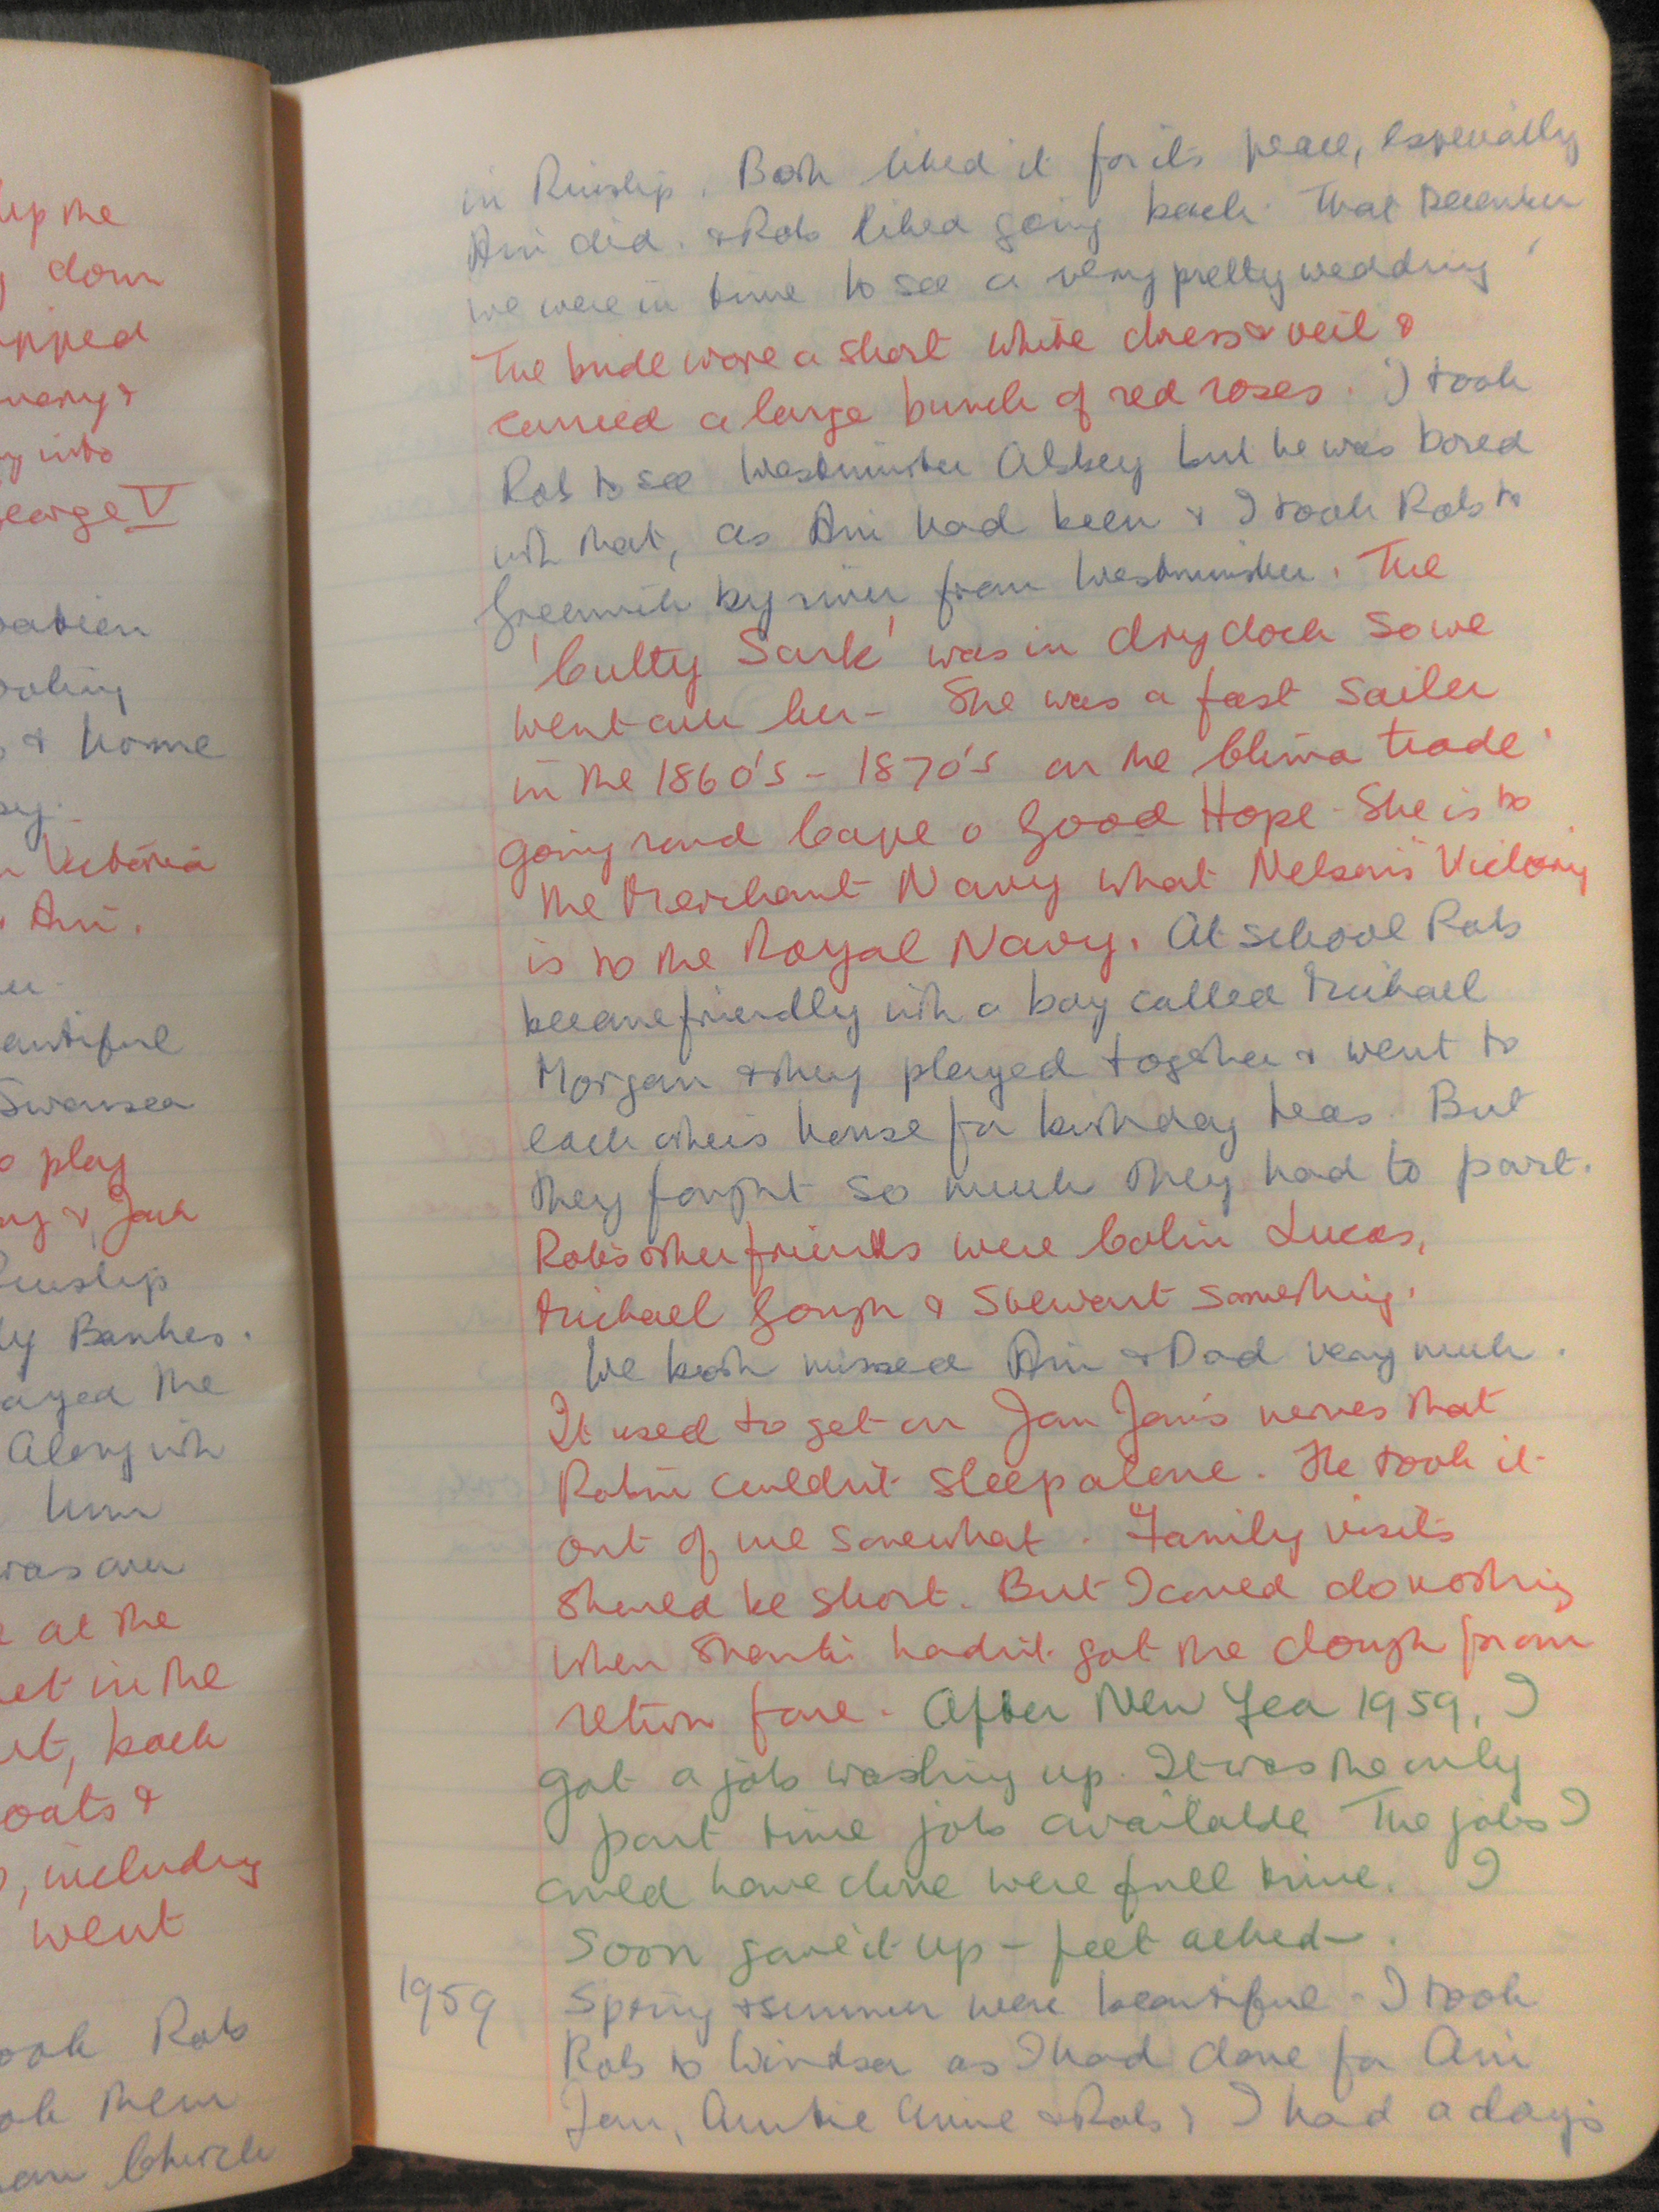 up the
down
pped
into
George V
& home
Victoria
Ani.
Swansea
play
& Jack
Ruislip
Banks.
the
Along with
him
was over
at the
in the
back
oats &
, including
went
Rob
them
Church
in Ruislip. Both liked it for its peace, especially
Ani did. & Rob liked going back. That December
we were in time to see a very pretty wedding
The bride wore a short white dress & veil &
carried a large bunch of red roses. I took
Rob to see Westminster Abbey but he was bored
with that, as Ani had been & I took Rob to
Greenwich by river from Westminster. The
'Cutty Sark' was in dry dock so we
went over her - She was a fast sailer
in the 1860's - 1870's on the China trade
going round Cape o Good Hope - She is to
the Merchant Navy what Nelson's "Victory
is to the Royal Navy. At school Rob
became friendly with a boy called Michael
Morgan & they played together & went to
each others house for birthday teas. But
they fought so much they had to part.
Rob's other friends were Colin Lucas,
Michael Gough & Stewart something.
We both missed Ani & Dad very much.
It used to get on Jan Jan's nerves that
Robin couldn't sleep alone. He took it
out of me somewhat. Family visits
should be short. But I could do nothing
when Shanti hadn't got the dough for our
return fare. After New Year 1959, I
got a job washing up. It was the only
part time job available. The jobs I
could have done were full time. I
soon gave it up - feet ached -.
1959 Spring & summer were beautiful - I took
Rob to Windsor as I had done for Ani
Jan, Auntie Anne & Rob & I had a day's